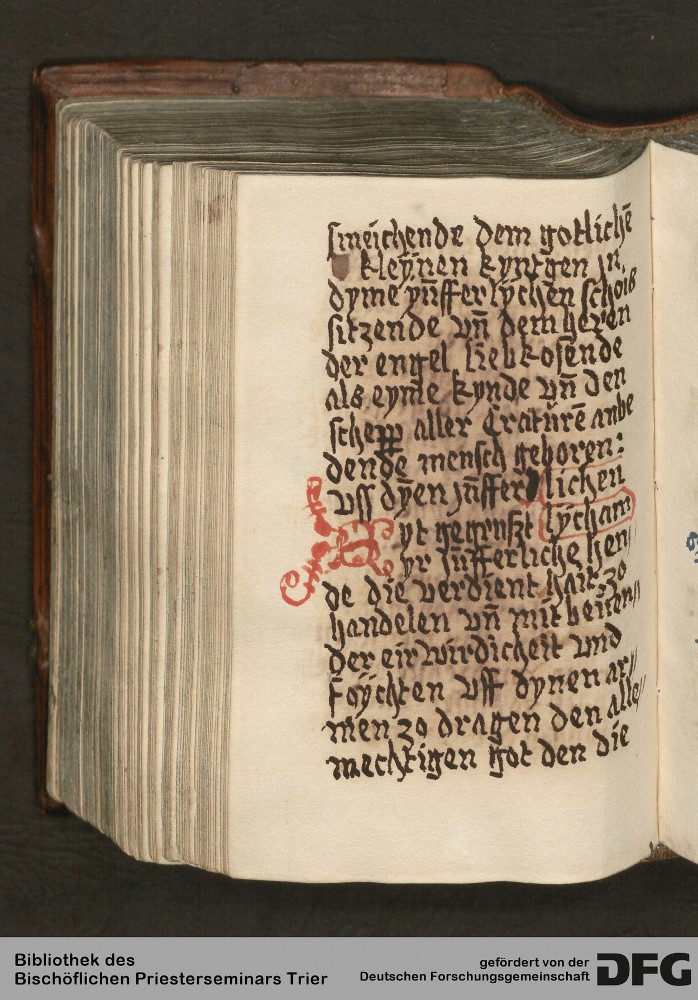 smeichende dem gotlichē
kleÿnen kyntgen jn
dyme yūfferlÿchen schois
sitzende vn̄ dem heren
der engel liebkosende
als eyme kynde vn̄ den
schepp aller Cratúrē anbe
dende mensch geboren:
vss dÿen jūffer lichen
lÿcham
yt gegrußt
yr jūfferliche hen
de die verdient hait zo
handelen vn̄ mit
der eirwirdicheit vnd
foÿchten vff dynen ar//
men zo dragen den alle//
mechtigen got den die
Bibliothek des
Bischöflichen Priesterseminars Trier
gefördert von der
Deutschen Forschungsgemeinschaft
DFG